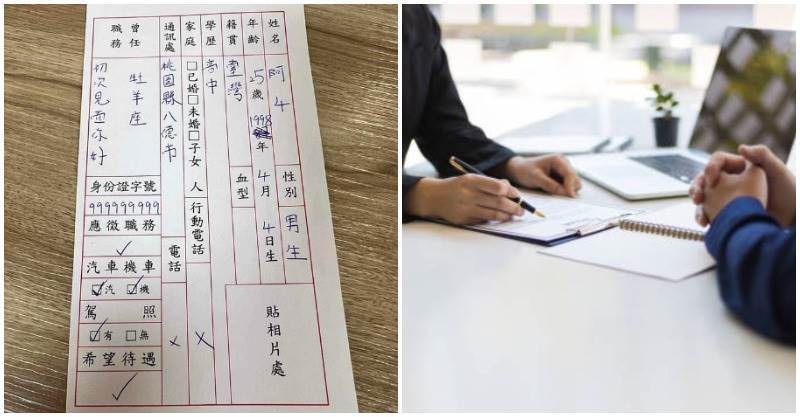 姓名 阿4
性別 男生
年齡 25歲 1998年4月4日生
籍貫 臺灣
血型
學歷 高中
家庭 □已婚□未婚□子女 人
行動電話 X
通訊處 桃園縣八德市
電話 X
曾任職務
牡羊座
初次見面你好
身份證字號
999999999
應徵職務
✓
汽車機車
☑汽 ☑機
駕照
☑有 □無
希望待遇
✓
貼相片處